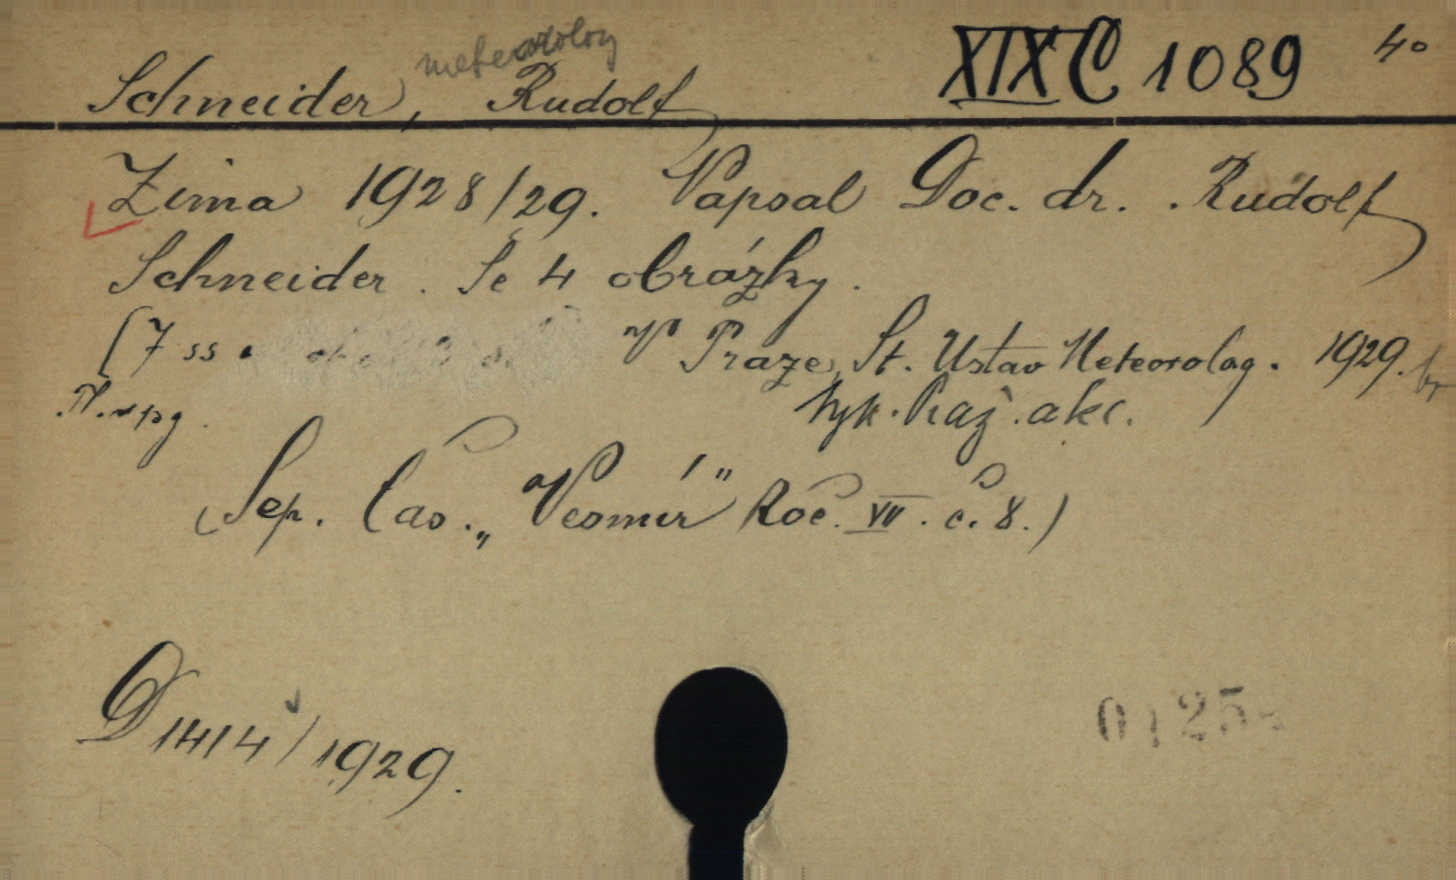 meteorolog
Schneider, Rudolf XIX C 1089 4°
Zima 1928/29. Napsal Doc. dr. Rudolf
Schneider. Se 4 obrázky.
[7 ss. V Praze, St. Ustav Meteorolog. 1929. br
Tyk. Praž. akc.
(Sep. Čas. „Vesmír" Roč. VII. č. 8.)
D 1414/1929.
0125